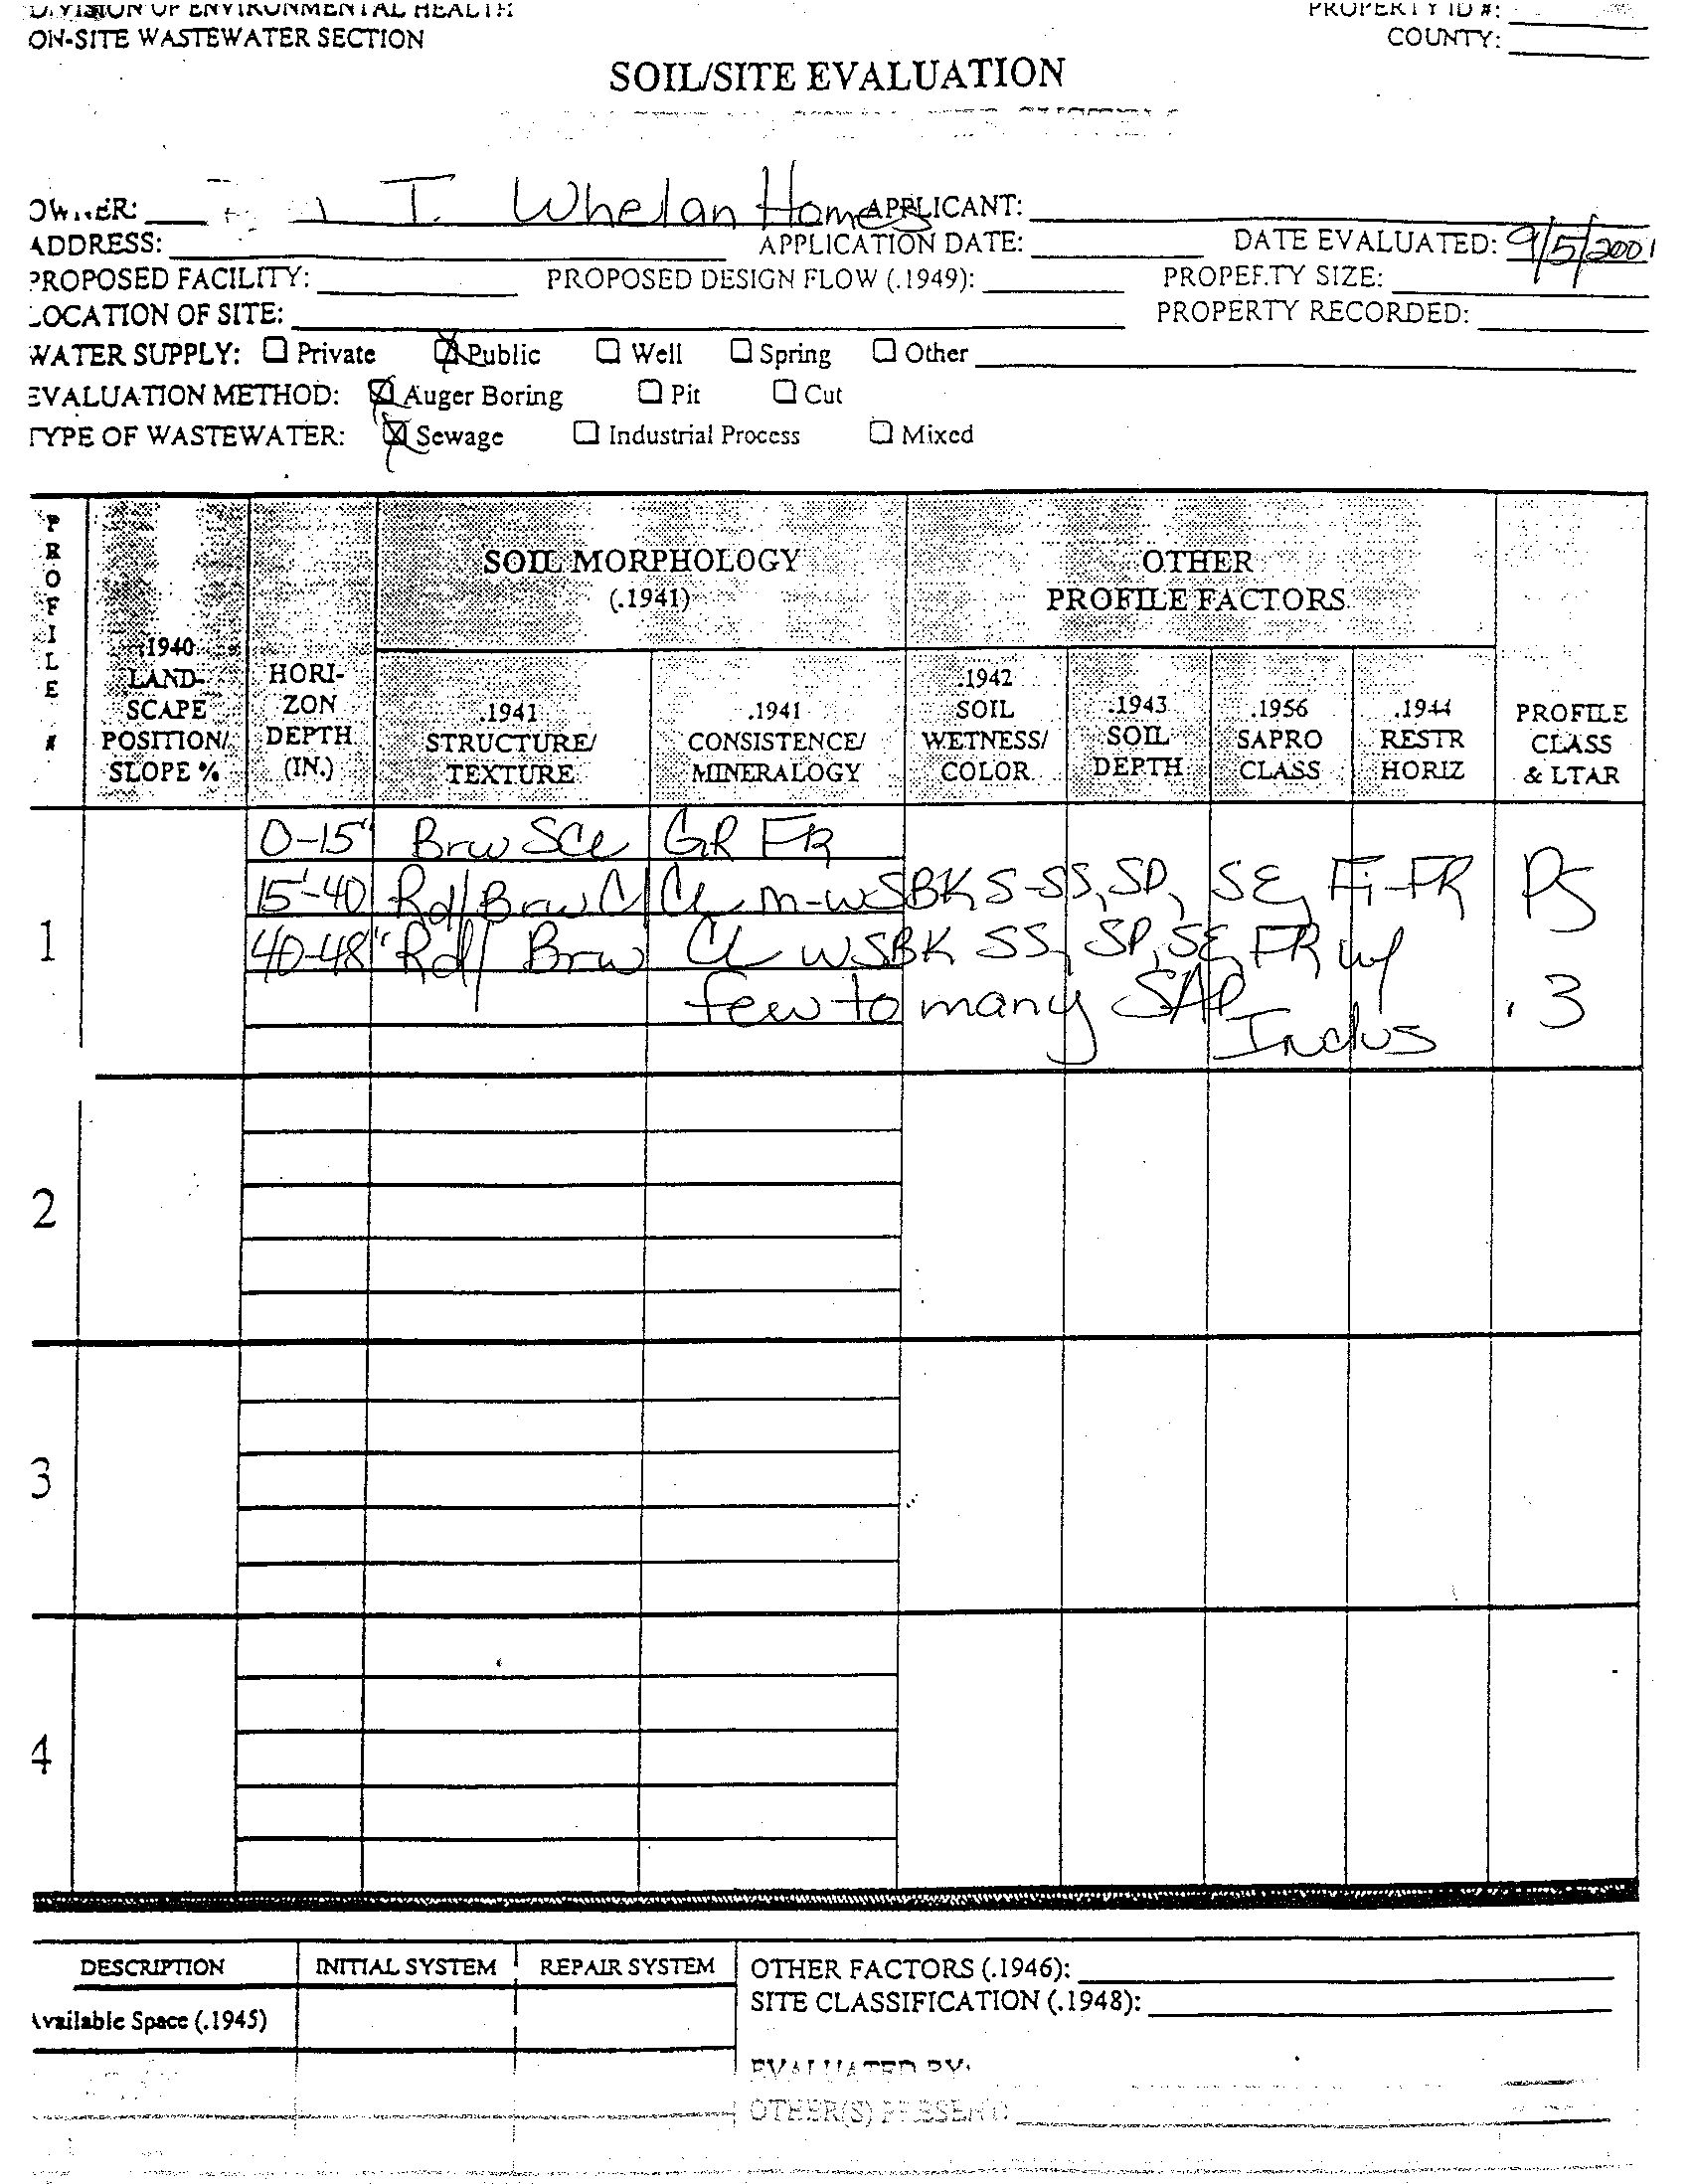 DIVISION OF ENVIRONMENTAL HEALTH
PROPERTY ID #:
ON-SITE WASTEWATER SECTION
COUNTY:
SOIL/SITE EVALUATION
OWNER: T. Whelan Homes APPLICANT:
ADDRESS: APPLICATION DATE: DATE EVALUATED: 9/5/2001
PROPOSED FACILITY: PROPOSED DESIGN FLOW (.1949): PROPERTY SIZE:
LOCATION OF SITE: PROPERTY RECORDED:
WATER SUPPLY: Private Public Well Spring Other
EVALUATION METHOD: Auger Boring Pit Cut
TYPE OF WASTEWATER: Sewage Industrial Process Mixed
PROFILE #
.1940 LAND-SCAPE POSITION/ SLOPE %
HORI-ZON DEPTH (IN.)
SOIL MORPHOLOGY (.1941)
OTHER PROFILE FACTORS
.1941 STRUCTURE/ TEXTURE
.1941 CONSISTENCE/ MINERALOGY
.1942 SOIL WETNESS/ COLOR
.1943 SOIL DEPTH
.1956 SAPRO CLASS
.1944 RESTR HORIZ
PROFILE CLASS & LTAR
1
0-15" Brw SCL GR FR
15'-40 Rd/Brw C/CL m-wSBK S-SS, SP, SE, Fi-FR PS
40-48" Rd/ Brw CL WSBK SS, SP, SE, FR w/
few to many SAP .3
Inclus
2
3
4
DESCRIPTION INITIAL SYSTEM REPAIR SYSTEM OTHER FACTORS (.1946):
SITE CLASSIFICATION (.1948):
Available Space (.1945)
EVALUATED BY:
OTHER(S) PRESENT: